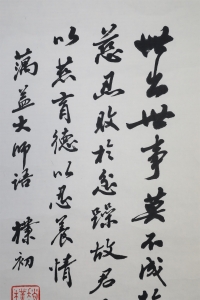 世出世事莫不成於
慈忍敗於忿躁故君
以慈育德以忍養情
蕅益大師語 樸初